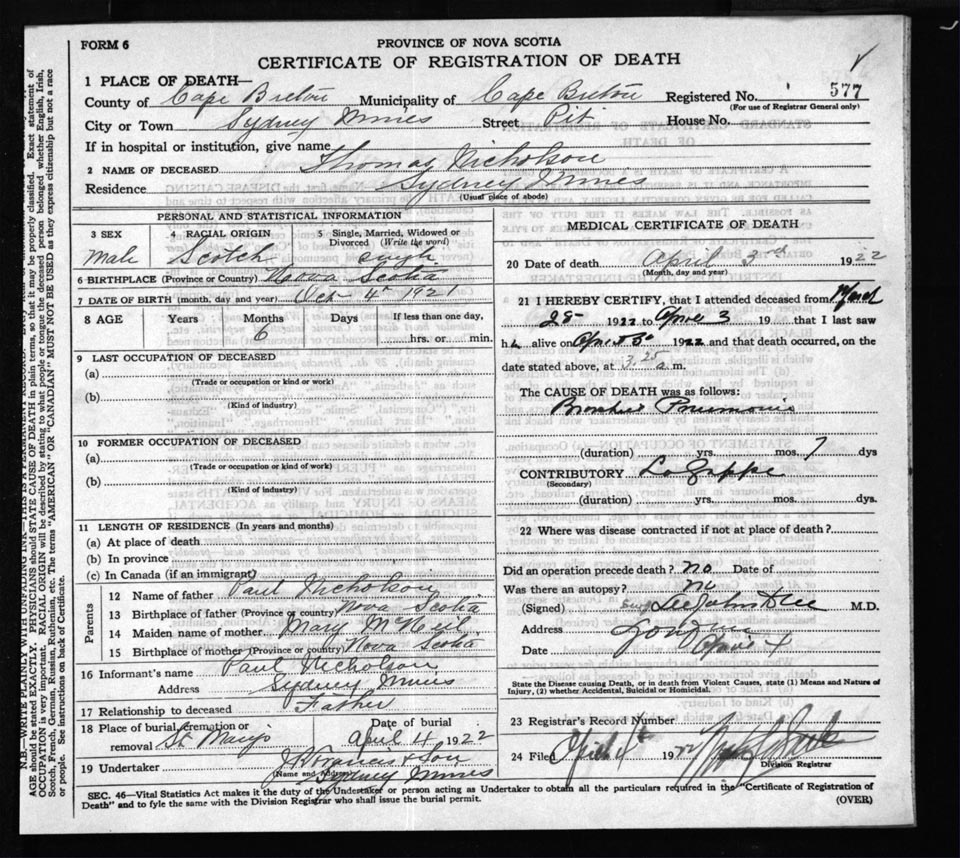 FORM 6
PROVINCE OF NOVA SCOTIA
CERTIFICATE OF REGISTRATION OF DEATH
1 PLACE OF DEATH—
County of Cape Breton Municipality of Cape Breton Registered No. 577
(For use of Registrar General only)
City or Town Sydney Mines Street Pit House No.
If in hospital or institution, give name
2 NAME OF DECEASED Thomas Nicholson
Residence Sydney Mines
(Usual place of abode)
PERSONAL AND STATISTICAL INFORMATION
3 SEX 4 RACIAL ORIGIN 5 Single, Married, Widowed or Divorced (Write the word)
Male Scotch single
6 BIRTHPLACE (Province or Country) Nova Scotia
7 DATE OF BIRTH (month, day and year) Oct 4 1921
8 AGE Years Months Days If less than one day,
6 hrs. or min.
9 LAST OCCUPATION OF DECEASED
(a)
(Trade or occupation or kind or work)
(b)
(Kind of industry)
10 FORMER OCCUPATION OF DECEASED
(a)
(Trade or occupation or kind or work)
(b)
(Kind of industry)
11 LENGTH OF RESIDENCE (In years and months)
(a) At place of death
(b) In province
(c) In Canada (if an immigrant)
Parents
12 Name of father Paul Nicholson
13 Birthplace of father (Province or country) Nova Scotia
14 Maiden name of mother Mary McNeil
15 Birthplace of mother (Province or country) Nova Scotia
16 Informant's name Paul Nicholson
Address Sydney Mines
17 Relationship to deceased Father
18 Place of burial, cremation or removal St Mary's Date of burial April 4 1922
19 Undertaker & Son
(Name and Address) Sydney Mines
MEDICAL CERTIFICATE OF DEATH
20 Date of death April 3rd 1922
(Month, day and year)
21 I HEREBY CERTIFY, that I attended deceased from
28 1922 to April 3 19 that I last saw
h alive on 1922 and that death occurred, on the
date stated above, at 3.25 a.m.
The CAUSE OF DEATH was as follows:
Pneumonia
(duration) yrs. mos. 7 dys
CONTRIBUTORY La Grippe
(Secondary)
(duration) yrs. mos. dys.
22 Where was disease contracted if not at place of death?
Did an operation precede death? no Date of
Was there an autopsy? no
(Signed) M.D.
Address
Date
State the Disease causing Death, or in death from Violent Causes, state (1) Means and Nature of Injury, (2) whether Accidental, Suicidal or Homicidal.
23 Registrar's Record Number
24 Filed April 4th 192
Division Registrar
SEC. 46—Vital Statistics Act makes it the duty of the Undertaker or person acting as Undertaker to obtain all the particulars required in the "Certificate of Registration of
Death" and to fyle the same with the Division Registrar who shall issue the burial permit. (OVER)
N.B.—WRITE PLAINLY WITH UNFADING INK—THIS IS A PERMANENT RECORD.
AGE should be stated EXACTLY. PHYSICIANS should STATE CAUSE OF DEATH in plain terms, so that it may be properly classified. Exact statement of
OCCUPATION is very important. RACIAL ORIGIN will be described by stating to what people or tongue the deceased person belonged whether English, Irish,
Scotch, French, German, Russian, Ruthenian, etc. The terms "AMERICAN" OR "CANADIAN" MUST NOT BE USED as they express citizenship but not a race
or people. See instructions on back of Certificate.